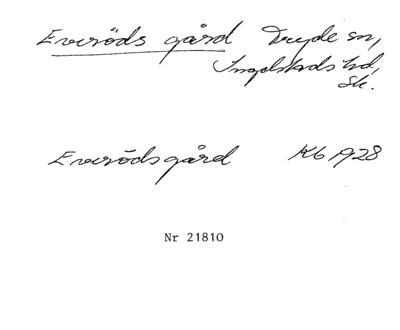 Everöds gård Tryde sn,
Ingelstads hd,
Sk.
Everödsgård Kb 1928
Nr 21810